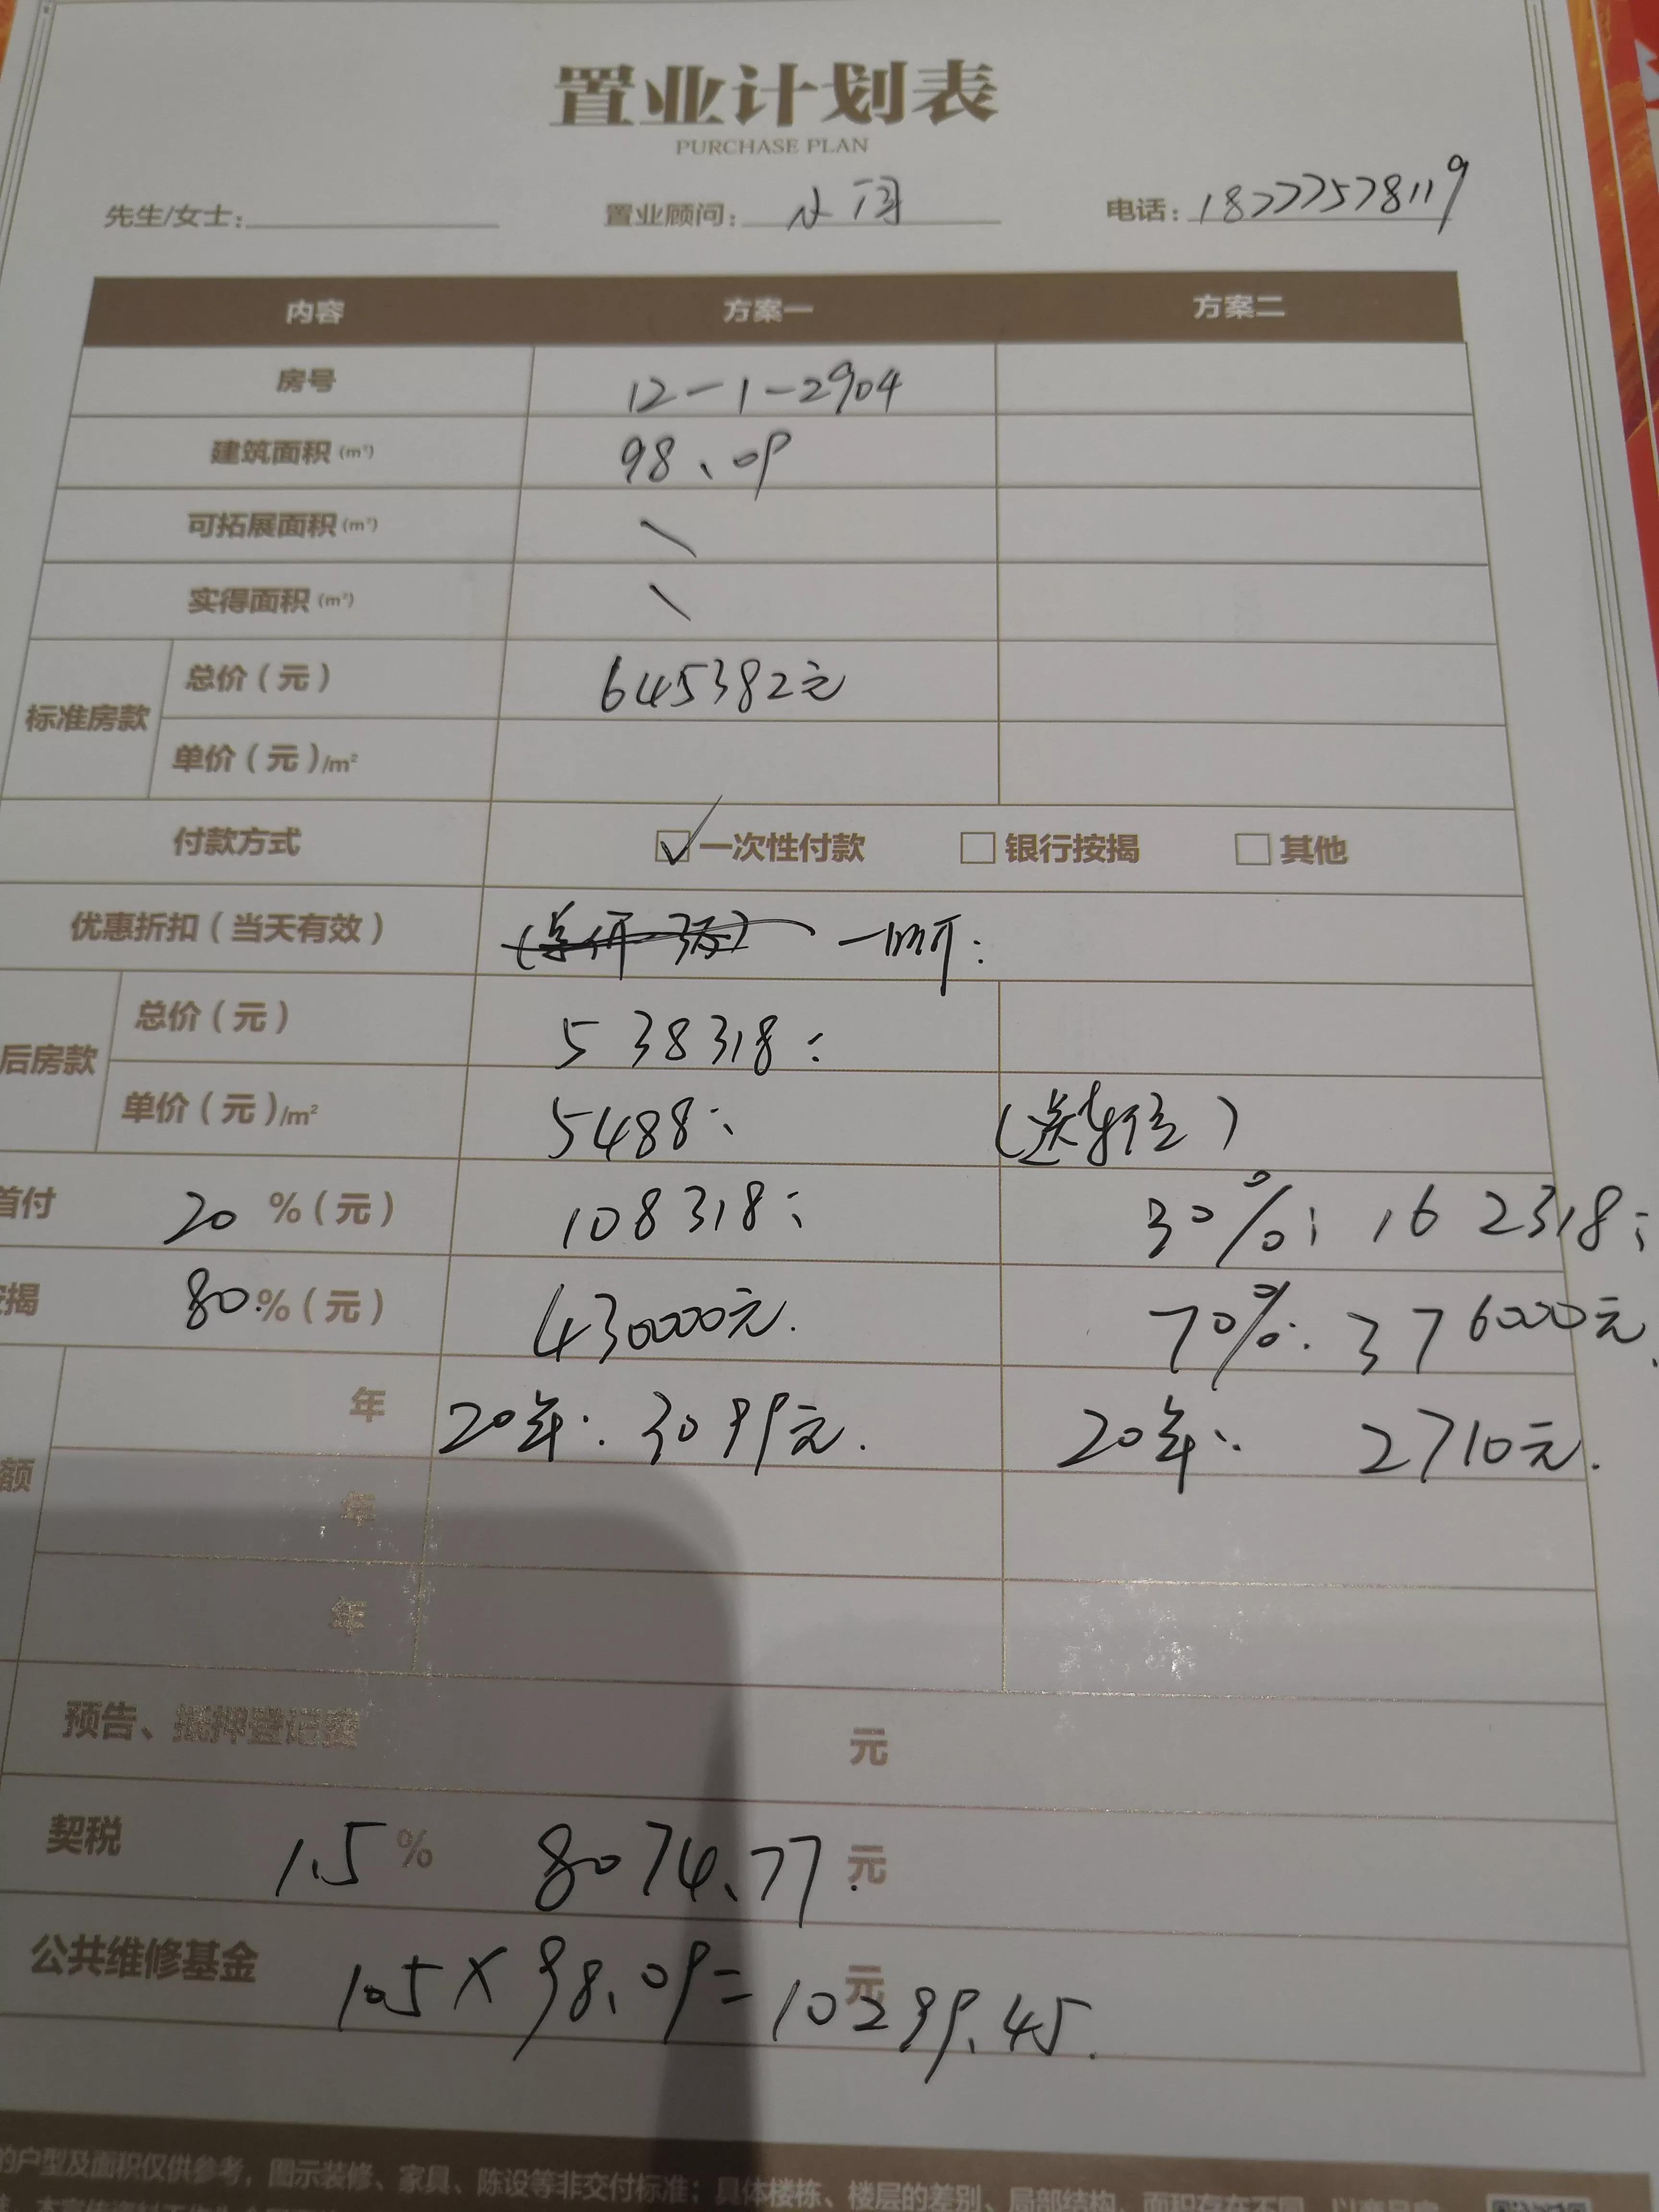 置业计划表
PURCHASE PLAN
先生/女士: 置业顾问: 小周 电话: 18777578119
内容 方案一 方案二
房号 12-1-2904
建筑面积(m²) 98.09
可拓展面积(m²) \
实得面积(m²) \
标准房款 总价(元) 645382元
单价(元)/m²
付款方式 ☑一次性付款 □银行按揭 □其他
优惠折扣(当天有效) 一口价:
后房款 总价(元) 538318:
单价(元)/m² 5488: (送车位)
首付 20%(元) 108318: 30%: 162318:
揭 80%(元) 430000元. 70%: 376000元.
额 年 20年: 3099元. 20年: 2710元.
年
年
预告、抵押登记费 元
契税 1.5% 8074.77元
公共维修基金 105×98.09=10299.45. 元
的户型及面积仅供参考,图示装修、家具、陈设等非交付标准;具体楼栋、楼层的差别、局部结构、面积存在不同,